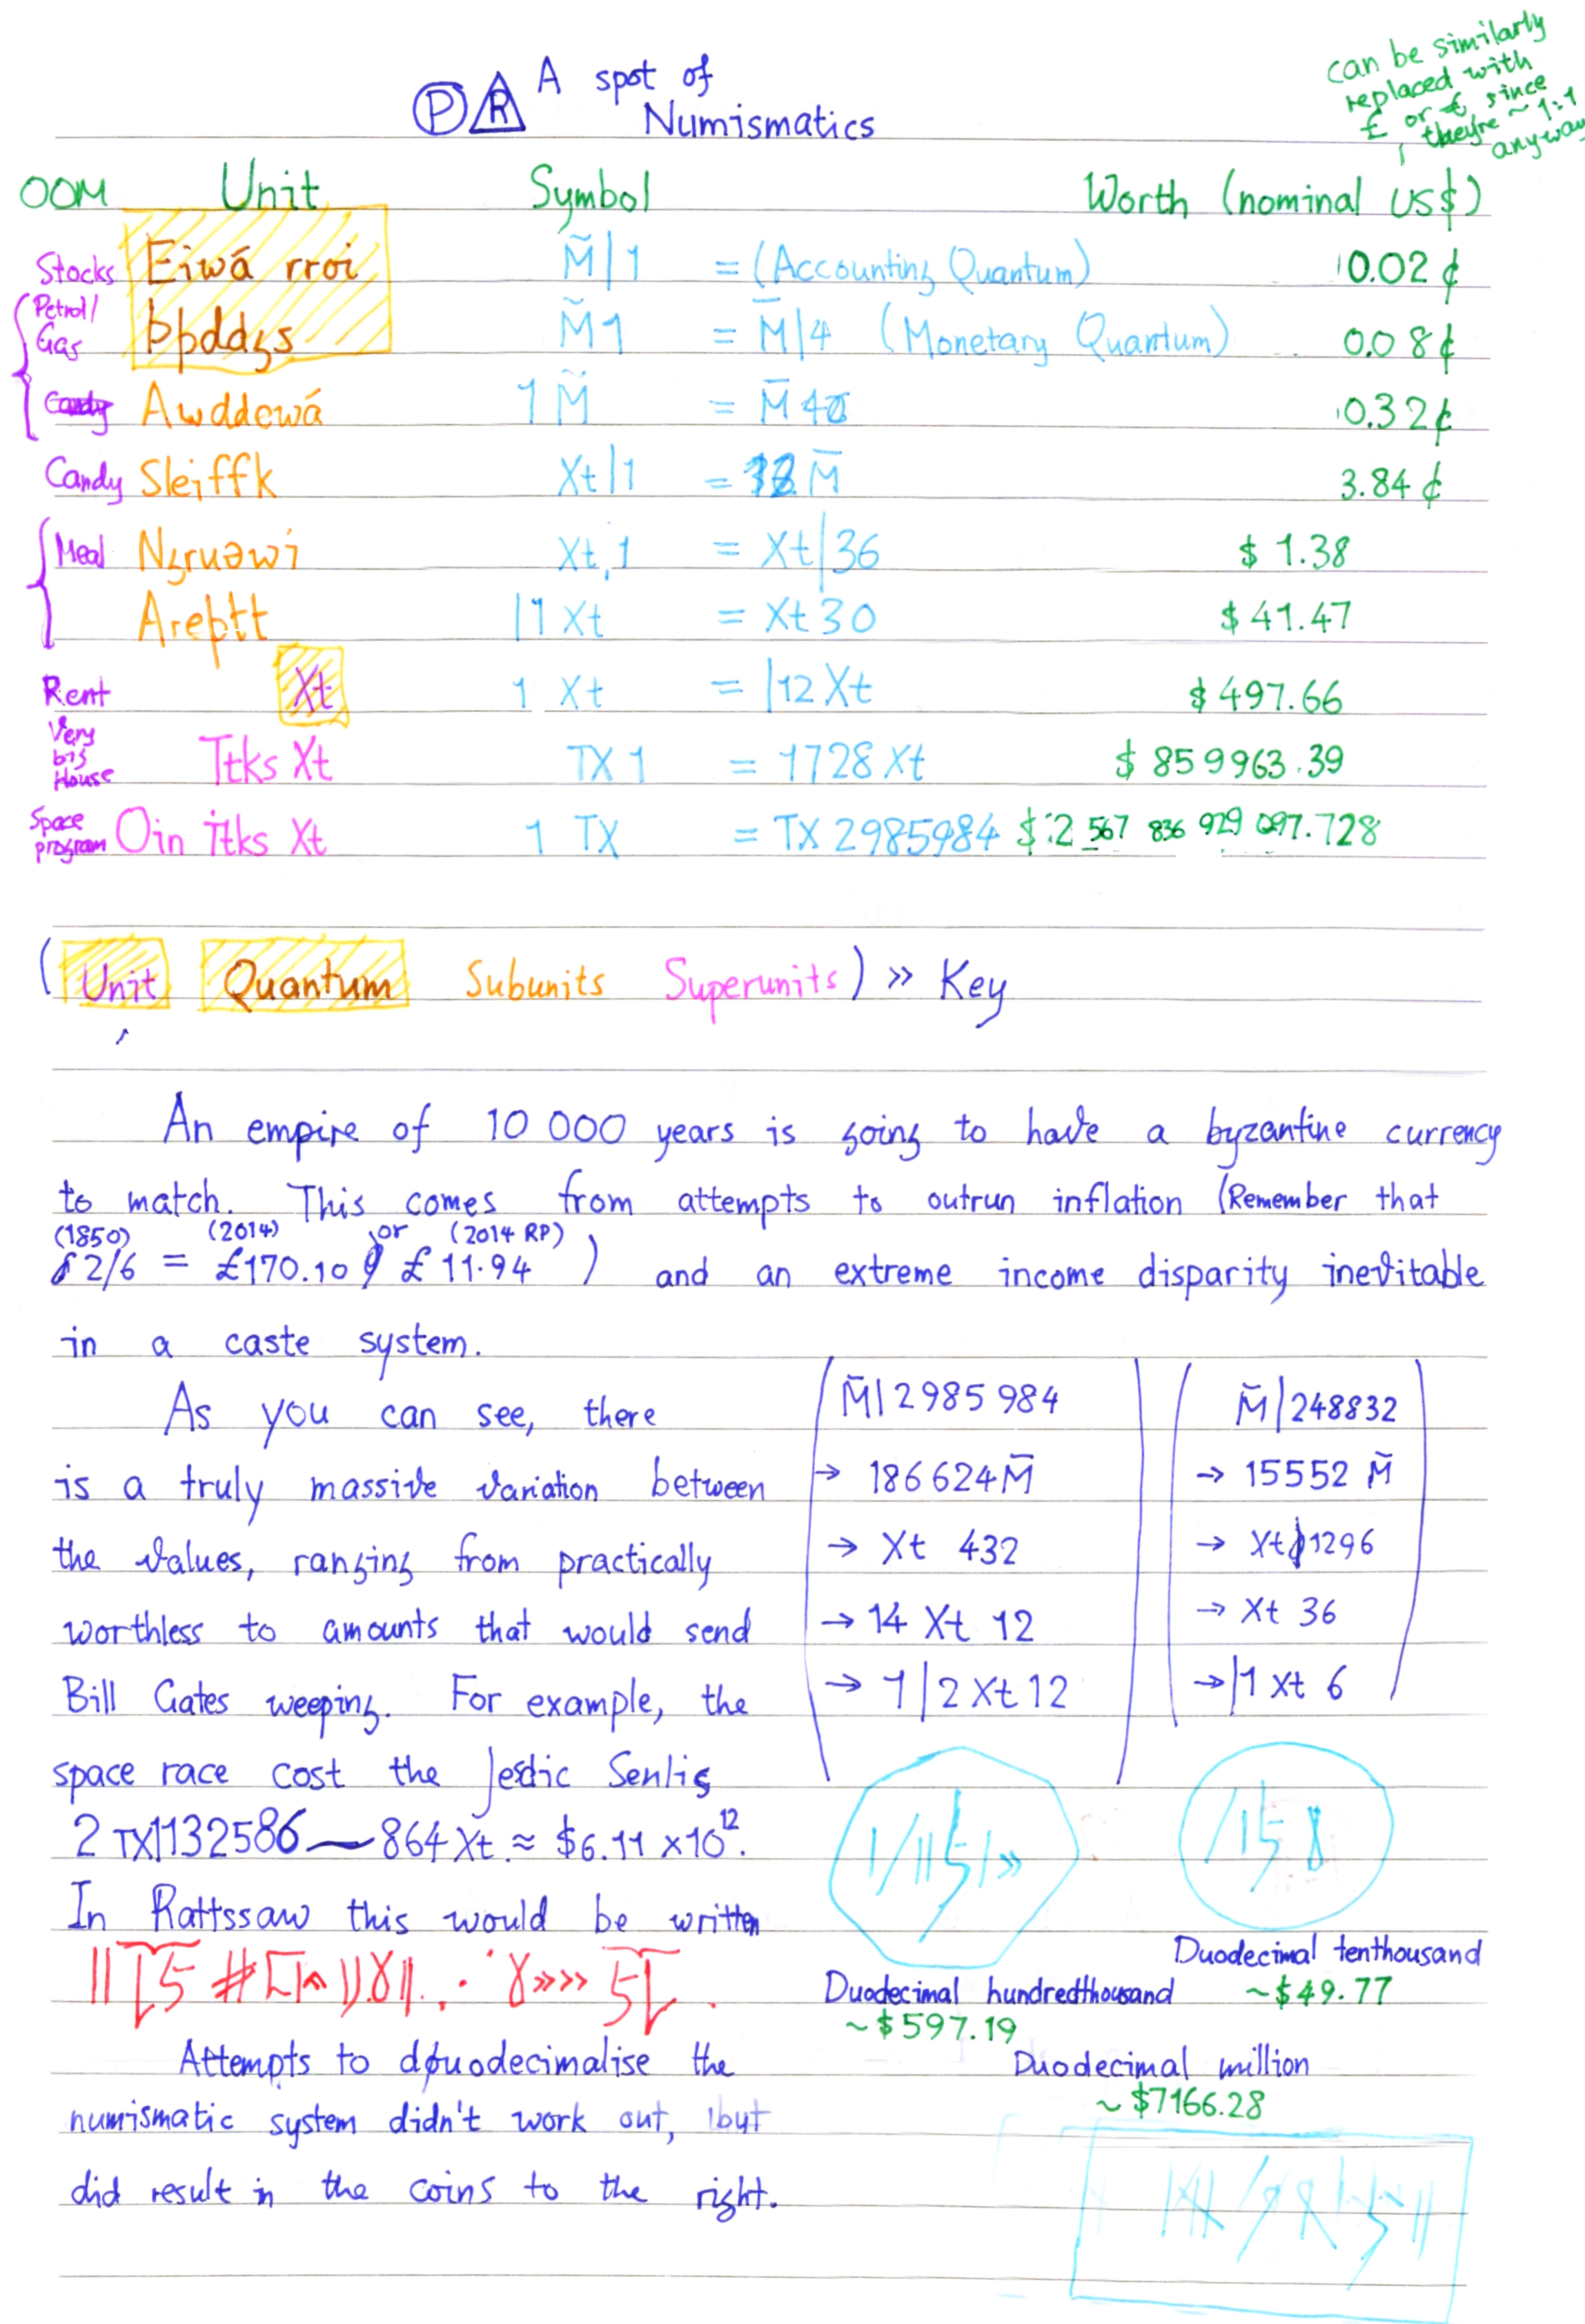 P R A spot of
Numismatics
can be similarly
replaced with
£ or €, since
they're ~ 1:1
anyway
OOM Unit Symbol Worth (nominal US$)
Stocks Eiwá rroi M̃|1 = (Accounting Quantum) 0.02 ¢
Petrol/
Gas Þþddaʒs M̃1 = M̄|4 (Monetary Quantum) 0.08¢
Awddewá 1M̃ = M̄4 0.32¢
Candy Sleiffk Xt|1 = 12 M̄ 3.84 ¢
Meal Nʒruəwi Xt,1 = Xt|36 $ 1.38
Areþtt |1 Xt = Xt30 $ 41.47
Rent Xt 1 Xt = |12Xt $ 497.66
Very
big
House Ttks Xt TX 1 = 1728 Xt $ 859963.39
Space
program Oin itks Xt 1 TX = TX 2985984 $ 2 567 836 929 097.728
(Unit Quantum Subunits Superunits) » Key
An empire of 10 000 years is going to have a byzantine currency
to match. This comes from attempts to outrun inflation (Remember that
(1850) (2014) or (2014 RP)
2/6 = £170.10 £ 11.94 ) and an extreme income disparity inevitable
in a caste system.
As you can see, there
is a truly massive variation between
the values, ranging from practically
worthless to amounts that would send
Bill Gates weeping. For example, the
space race cost the Jesdic Senlis
2 TX1132586—864 Xt ≈ $6.11 ×10¹².
In Rattssaw this would be written
Attempts to duodecimalise the
numismatic system didn't work out, but
did result in the coins to the right.
M̃|2985984
→ 186624M̄
→ Xt 432
→ 14 Xt 12
→ 1|2 Xt 12
M̃|248832
→ 15552 M̃
→ Xt 1296
→ Xt 36
→ |1 Xt 6
Duodecimal tenthousand
~$49.77
Duodecimal hundredthousand
~$597.19
Duodecimal million
~$7166.28